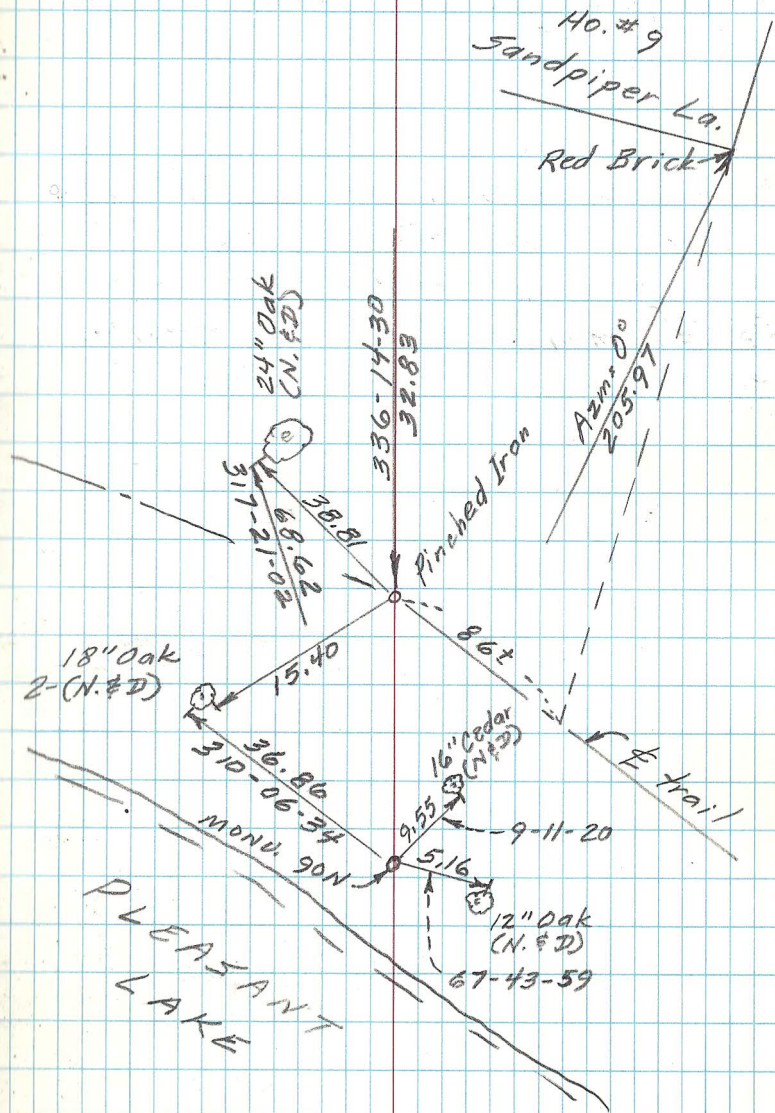 Ho. #9
Sandpiper La.
Red Brick
24" Oak
(N. & D)
336-14-30
32.83
Azm = 0°
205.97
Pinched Iron
38.81
68.62
317-21-02
86±
18" Oak
2-(N. & D)
15.40
16" Cedar
(N&D)
℄ trail
36.86
310-06-34
9.55
9-11-20
MONU. 90N
5.16
12" Oak
(N. & D)
67-43-59
PLEASANT
LAKE